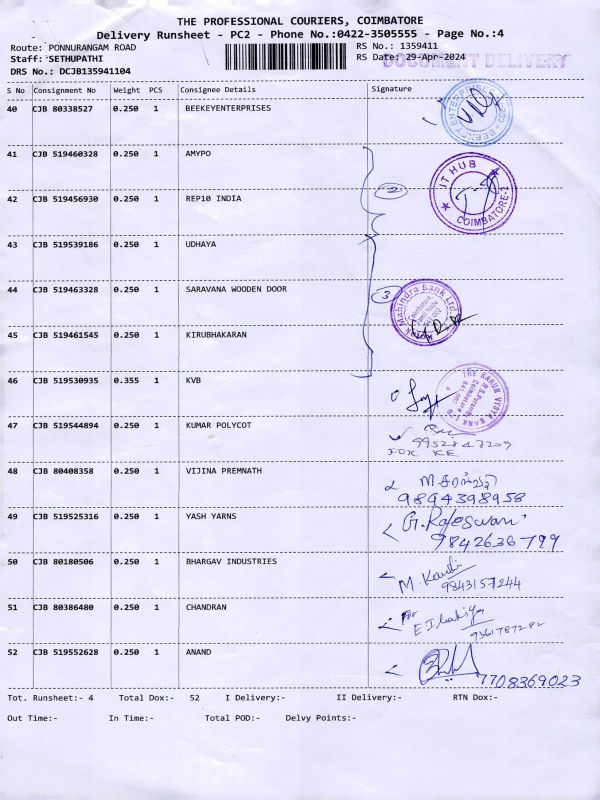 THE PROFESSIONAL COURIERS, COIMBATORE
Delivery Runsheet - PC2 - Phone No.:0422-3505555 - Page No.:4
Route: PONNURANGAM ROAD RS No.: 1359411
Staff: SETHUPATHI RS Date: 29-Apr-2024
DOCUMENT DELIVERY
DRS No.: DCJB135941104
S No Consignment No Weight PCS Consignee Details Signature
40 CJB 80338527 0.250 1 BEEKEYENTERPRISES
41 CJB 519460328 0.250 1 AMYPO
IT HUB
COIMBATORE-2
2
42 CJB 519456930 0.250 1 REP10 INDIA
43 CJB 519539186 0.250 1 UDHAYA
44 CJB 519463328 0.250 1 SARAVANA WOODEN DOOR
3
Mahindra Bank Ltd.
45 CJB 519461545 0.250 1 KIRUBHAKARAN
46 CJB 519530935 0.355 1 KVB
THE KARUR VYSYA BANK LTD
47 CJB 519544894 0.250 1 KUMAR POLYCOT
FOR KE
48 CJB 80408358 0.250 1 VIJINA PREMNATH
9894398958
49 CJB 519525316 0.250 1 YASH YARNS
G. Rajeswari
9842636799
50 CJB 80180506 0.250 1 BHARGAV INDUSTRIES
9843157244
51 CJB 80386480 0.250 1 CHANDRAN
For
52 CJB 519552628 0.250 1 ANAND
7708369023
Tot. Runsheet:- 4 Total Dox:- 52 I Delivery:- II Delivery:- RTN Dox:-
Out Time:- In Time:- Total POD:- Delvy Points:-